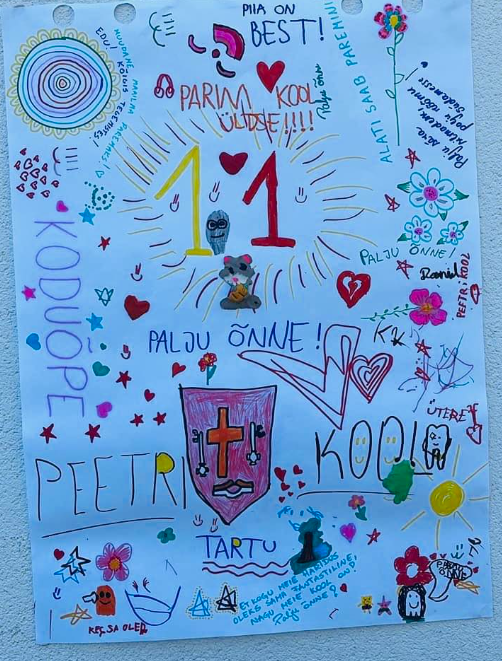 PIIA ON
BEST!
EDU!
KÕIGIS TEGEMISTES!
ALATI SAAB PAREMINI!
PARIM KOOL
ÜLDSE!!!!
Palju õnne
11
KODUÕPE
PALJU ÕNNE!
Raniel
PEETRI KOOL
KK
PALJU ÕNNE!
PEETRI KOOL
TARTU
ET KOGU MEIE HARIDUS
OLEKS SAMA FANTASTILINE,
NAGU MEIE KOOL
ON!
Palju õnne!
KES SA OLED
PALJU
ÕNNE